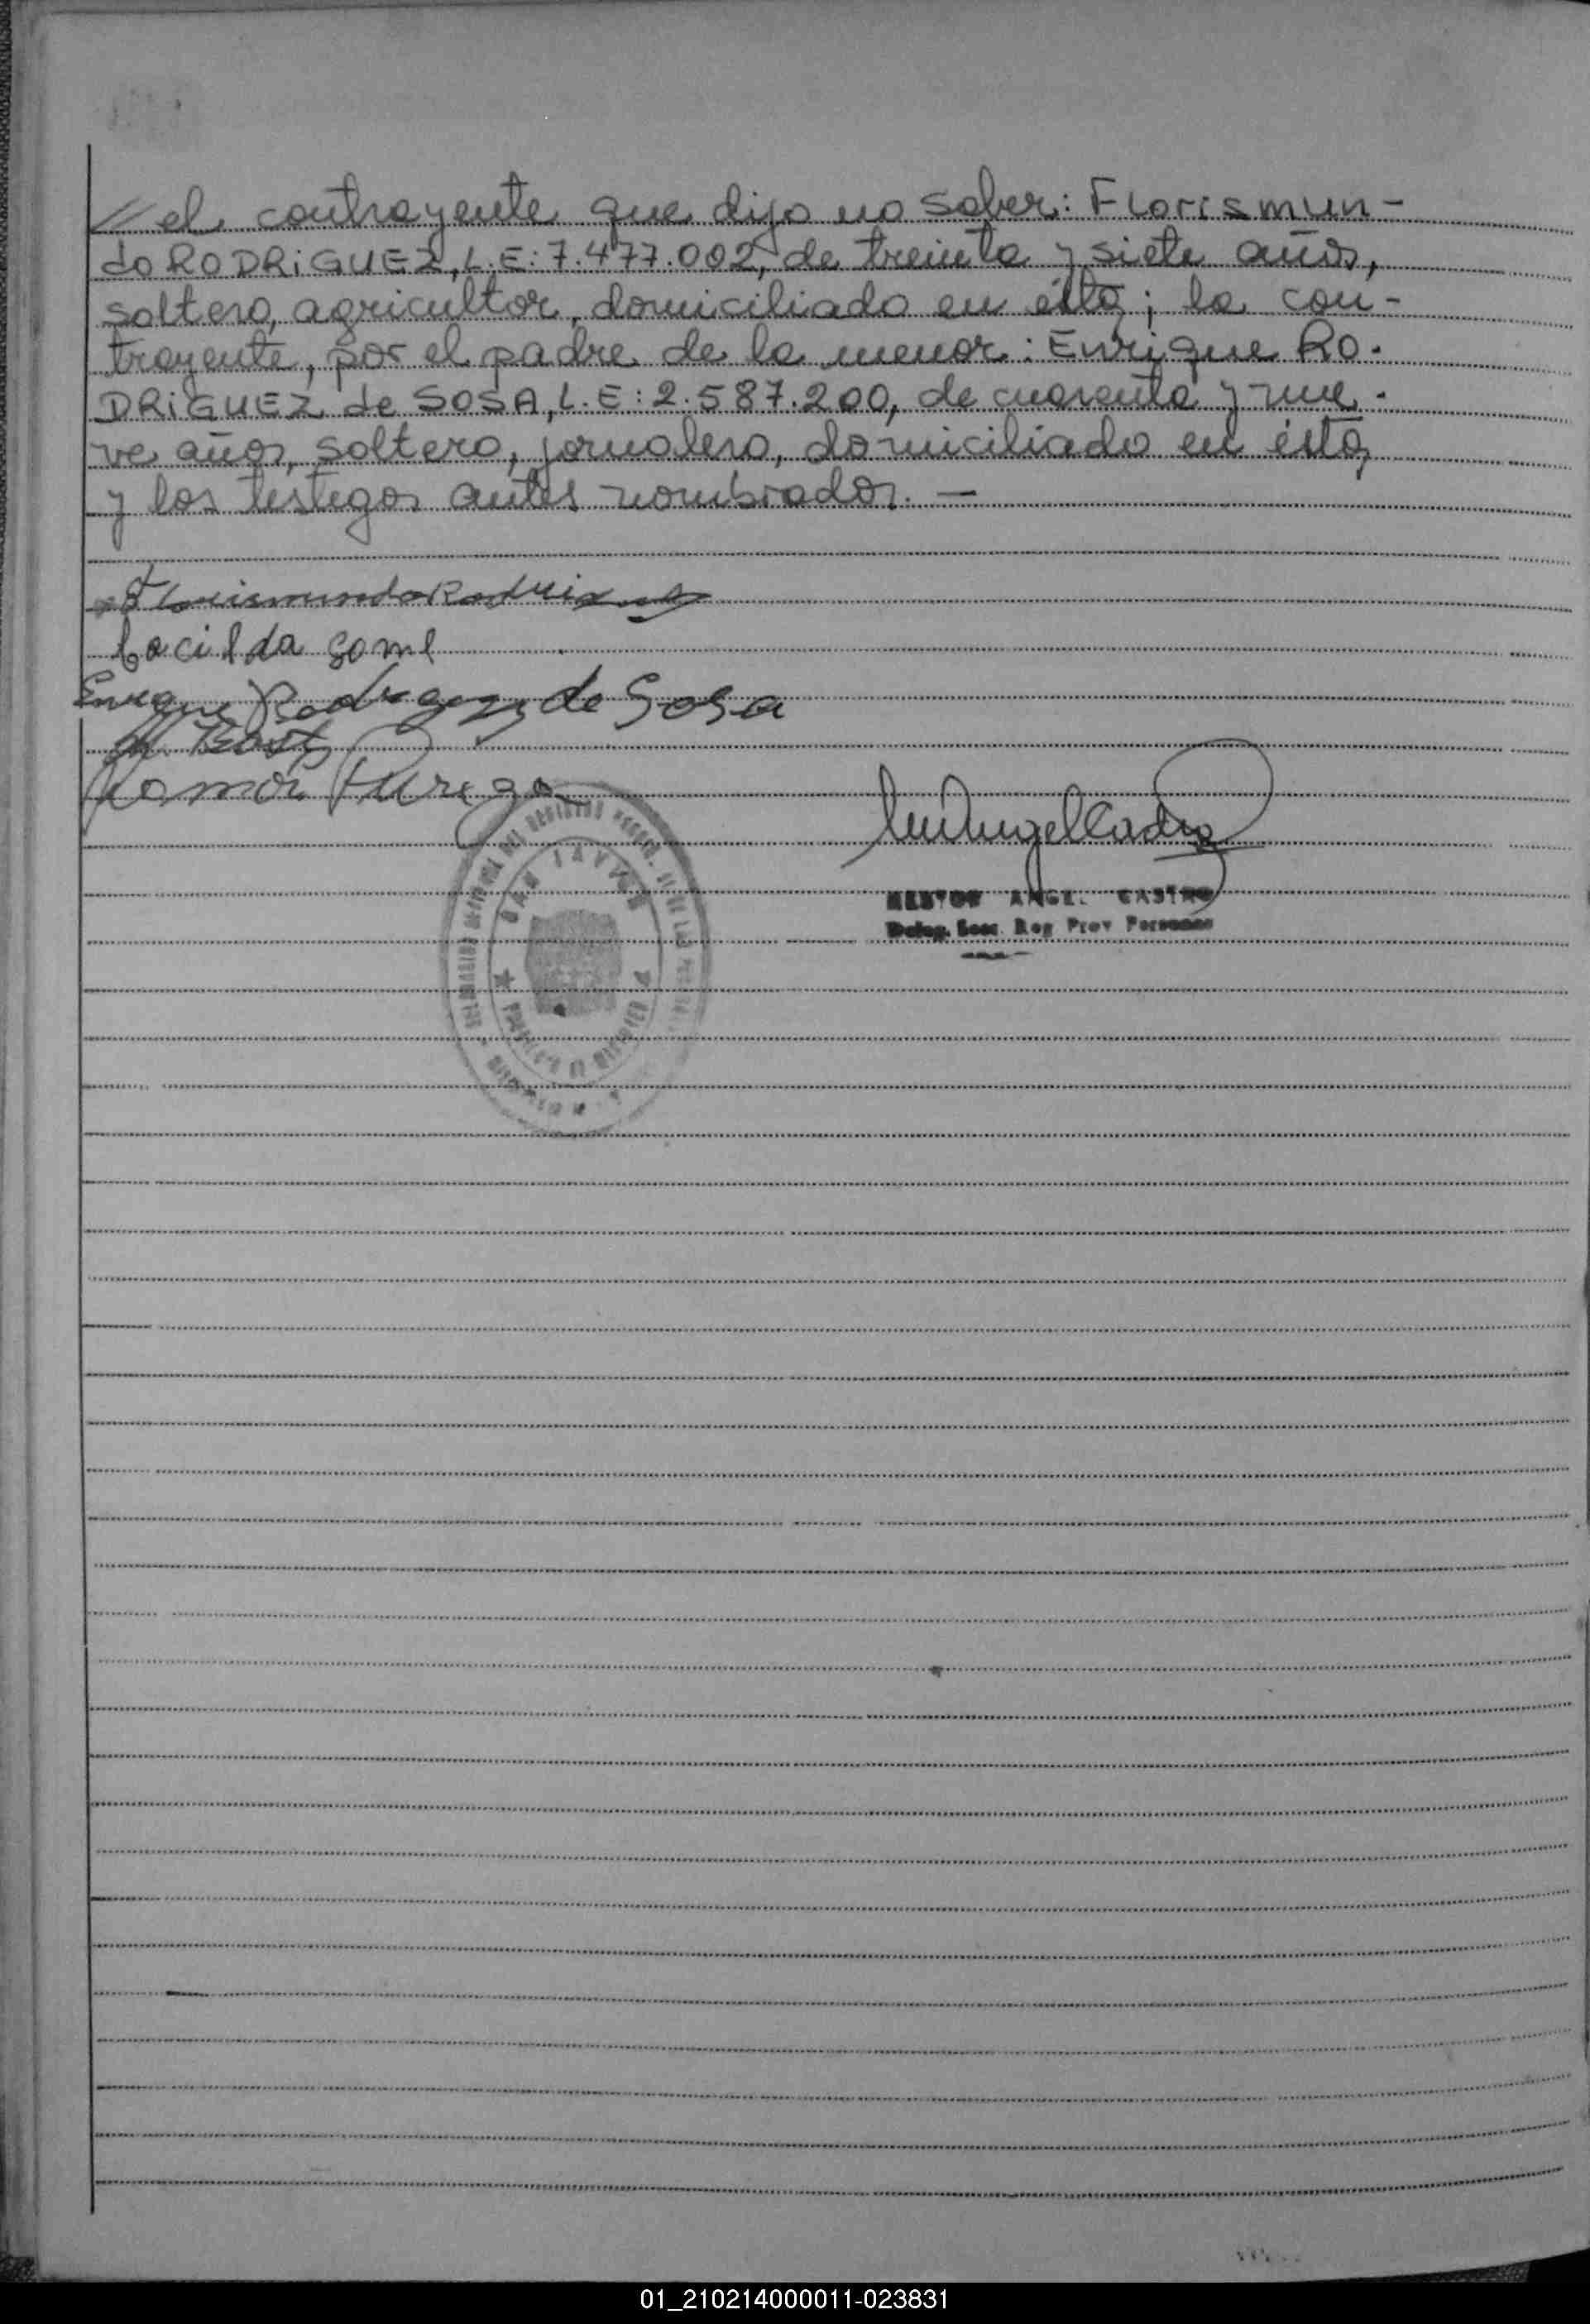 // el contrayente que dijo no saber: Florismun-
do RODRIGUEZ, L.E: 7.477.002, de treinta y siete años,
soltero, agricultor, domiciliado en ésta; la con-
trayente, por el padre de la menor: Enrique RO-
DRIGUEZ de SOSA, L.E: 2.587.200, de cuarenta y nue-
ve años, soltero, jornalero, domiciliado en ésta,
y los testigos antes nombrados. —
Florismundo
Enrique Rodriguez de Sosa
Ramon
SAN JAVIER
NESTOR ANGEL CASTRO
Deleg. Secc. Reg Prov Personas
01_210214000011-023831